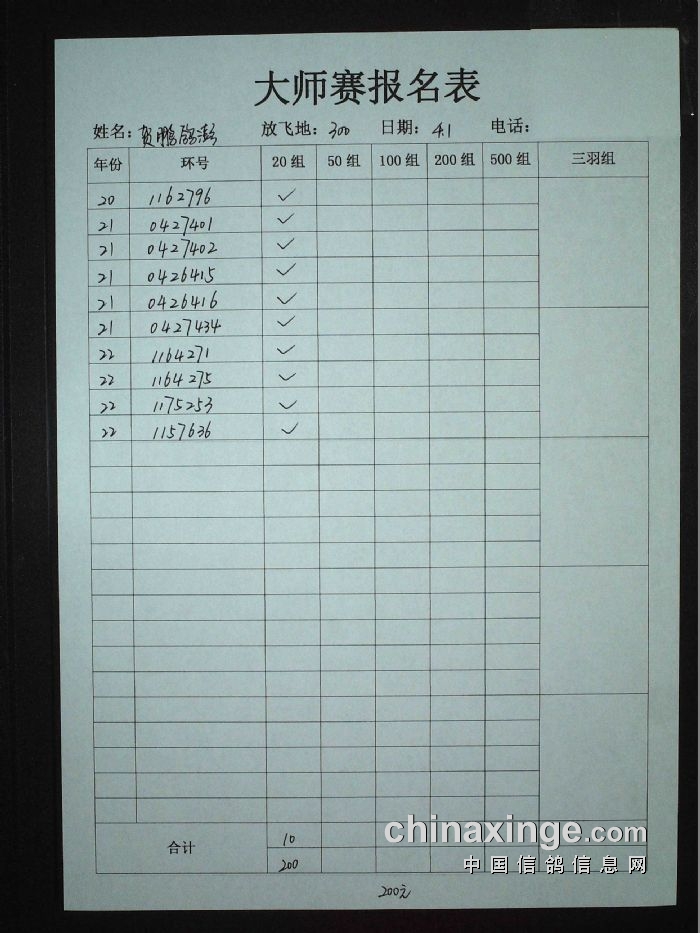 大师赛报名表
姓名：贺鹏 放飞地：300 日期：4.1 电话：
年份 环号 20组 50组 100组 200组 500组 三羽组
20 1162796 ✓
21 0427401 ✓
21 0427402 ✓
21 0426415 ✓
21 0426416 ✓
21 0427434 ✓
22 1164271 ✓
22 1164275 ✓
22 1175253 ✓
22 1157636 ✓
合计 10
200
chinaxinge.com
中国信鸽信息网
200元